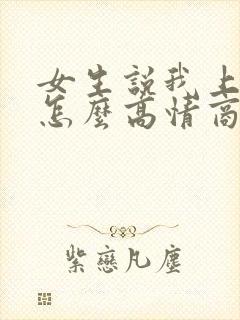 女生説我上
怎麼高情商
紫戀凡塵